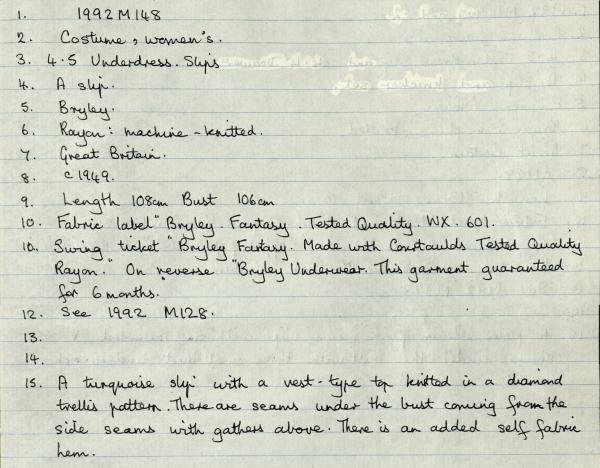 1. 1992 M 148
2. Costume, women's.
3. 4.5 Underdress. Slips
4. A slip.
5. Bryley.
6. Rayon: machine-knitted.
7. Great Britain.
8. c 1949.
9. Length 108cm Bust 106cm
10. Fabric label "Bryley. Fantasy. Tested Quality. WX. 601.
10. Swing ticket "Bryley Fantasy. Made with Courtaulds Tested Quality
Rayon." On reverse "Bryley Underwear. This garment guaranteed
for 6 months."
12. See 1992 M128.
13.
14.
15. A turquoise slip with a vest-type top knitted in a diamond
trellis pattern. There are seams under the bust coming from the
side seams with gathers above. There is an added self fabric
hem.